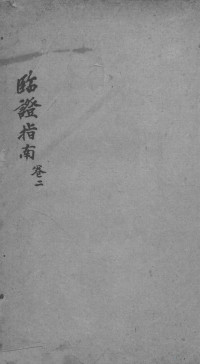 臨證指南 卷二